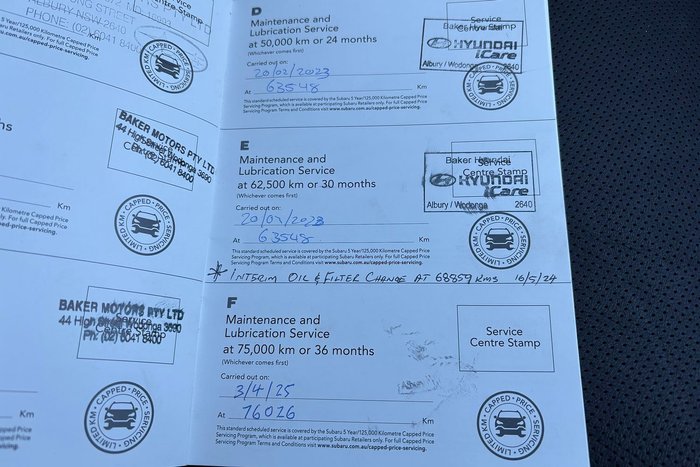 STREET
ALBURY NSW 2640
PHONE: (02)
Centre Stamp
LIMITED KM • CAPPED • PRICE • SERVICING •
BAKER MOTORS PTY LTD
44 High Street Wodonga 3690
Ph: (02) 6041 8400
Kilometre Capped
LIMITED KM • CAPPED • PRICE • SERVICING •
BAKER MOTORS PTY LTD
44 High Street Wodonga 3690
Ph: (02) 6041 8400
Km
Kilometre Capped Price
LIMITED KM • CAPPED • PRICE • SERVICING •
D
Maintenance and
Lubrication Service
at 50,000 km or 24 months
(Whichever comes first)
Carried out on:
20/02/2023
At 63548 Km
This standard scheduled service is covered by the Subaru 5 Year/125,000 Kilometre Capped Price
Servicing Program, which is available at participating Subaru Retailers only. For full Capped Price
Servicing Program Terms and Conditions visit www.subaru.com.au/capped-price-servicing.
Service
Centre Stamp
Baker Hyundai
HYUNDAI
iCare
Albury / Wodonga 2640
LIMITED KM • CAPPED • PRICE • SERVICING •
E
Maintenance and
Lubrication Service
at 62,500 km or 30 months
(Whichever comes first)
Carried out on:
At 63548 Km
This standard scheduled service is covered by the Subaru 5 Year/125,000 Kilometre Capped Price
Servicing Program, which is available at participating Subaru Retailers only. For full Capped Price
Servicing Program Terms and Conditions visit www.subaru.com.au/capped-price-servicing.
Service
Centre Stamp
Baker Hyundai
HYUNDAI
iCare
Albury / Wodonga 2640
LIMITED KM • CAPPED • PRICE • SERVICING •
* INTERIM OIL & FILTER CHANGE AT 68859 KMS 16/5/24
F
Maintenance and
Lubrication Service
at 75,000 km or 36 months
(Whichever comes first)
Carried out on:
3/4/25
At 76026 Km
This standard scheduled service is covered by the Subaru 5 Year/125,000 Kilometre Capped Price
Servicing Program, which is available at participating Subaru Retailers only. For full Capped Price
Servicing Program Terms and Conditions visit www.subaru.com.au/capped-price-servicing.
Service
Centre Stamp
LIMITED KM • CAPPED • PRICE • SERVICING •